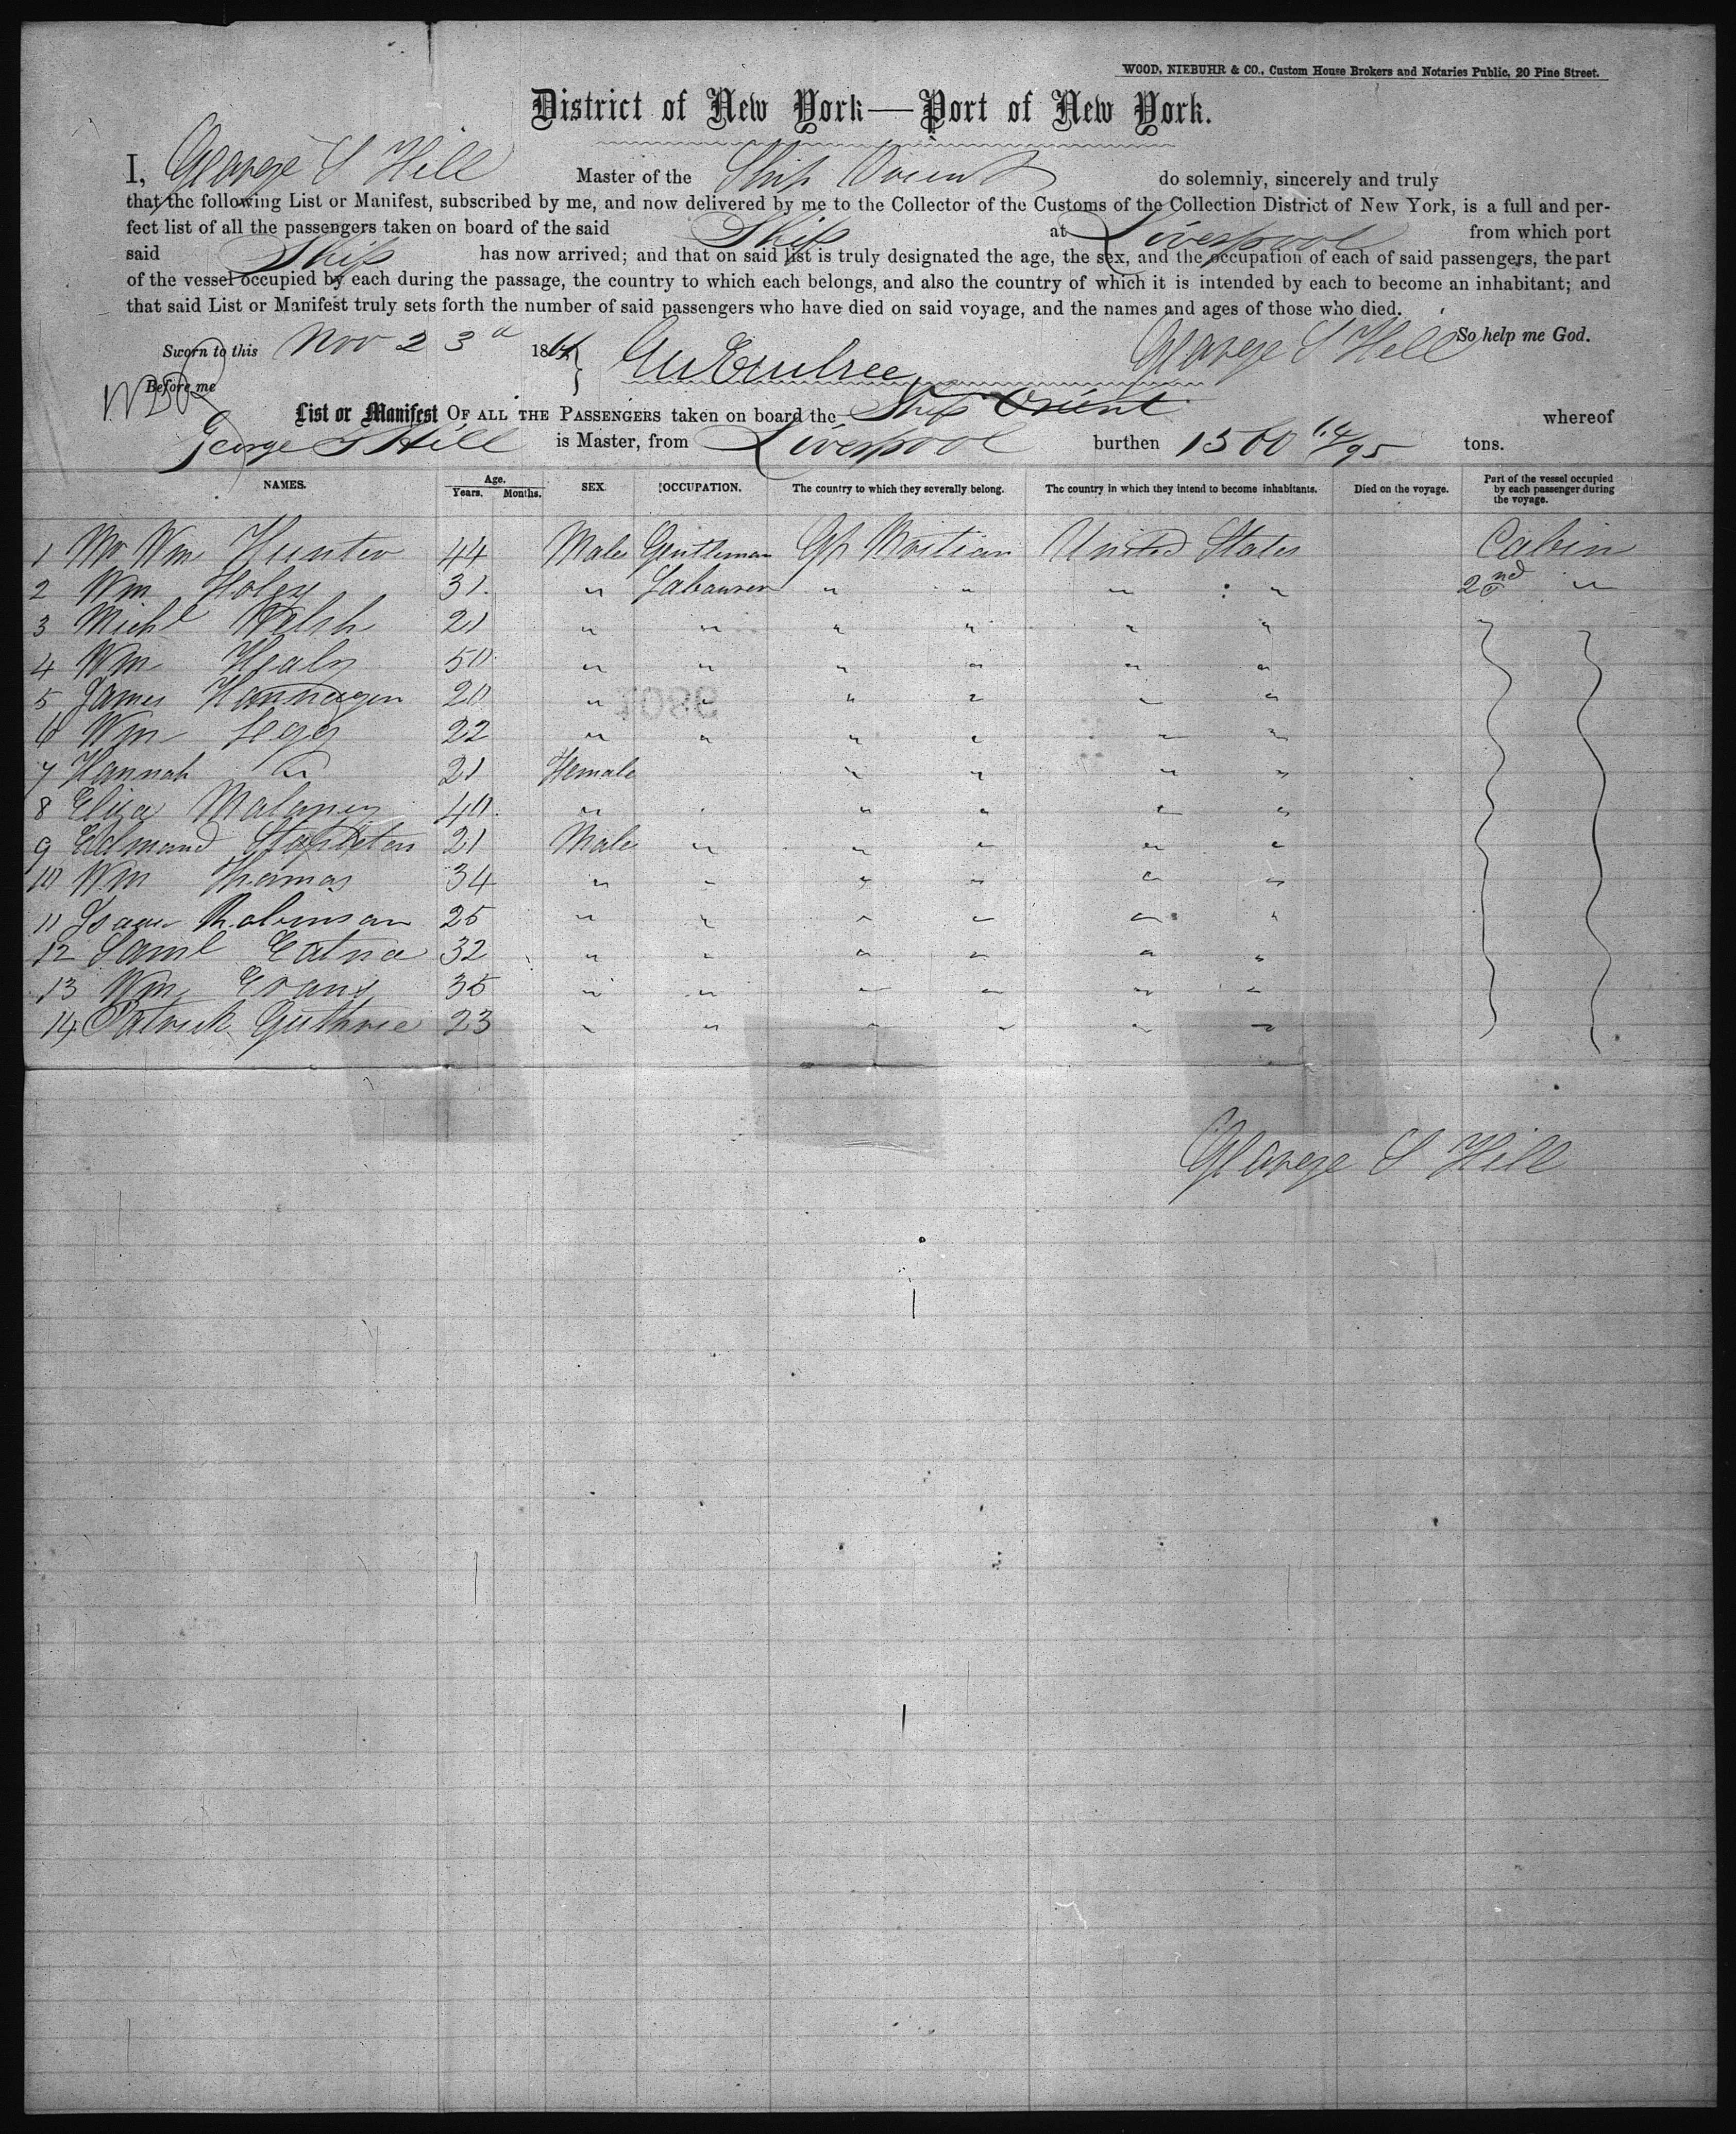 WOOD, NIEBUHR & CO., Custom House Brokers and Notaries Public, 20 Pine Street.
District of New York—Port of New York.
I, George S Hill Master of the Ship Orient do solemnly, sincerely and truly
that the following List or Manifest, subscribed by me, and now delivered by me to the Collector of the Customs of the Collection District of New York, is a full and per-
fect list of all the passengers taken on board of the said Ship at Liverpool from which port
said Ship has now arrived; and that on said list is truly designated the age, the sex, and the occupation of each of said passengers, the part
of the vessel occupied by each during the passage, the country to which each belongs, and also the country of which it is intended by each to become an inhabitant; and
that said List or Manifest truly sets forth the number of said passengers who have died on said voyage, and the names and ages of those who died.
So help me God.
Sworn to this Nov 23d 1864 George S Hill
Before me
List or Manifest OF ALL THE PASSENGERS taken on board the Ship Orient whereof
George S Hill is Master, from Liverpool burthen 1560 64/95 tons.
NAMES. Age. Years. Months. SEX OCCUPATION. The country to which they severally belong. The country in which they intend to become inhabitants. Died on the voyage. Part of the vessel occupied by each passenger during the voyage.
1 Mr Wm Hunter 44 Male Gentleman Gt Britian United States Cabin
2 Wm Foley 31. " Labourer " " " " 2nd "
3 Michl Welsh 21 " " " " " "
4 Wm Healy 50 " " " " " "
5 James Hannagen 20 " " " " " "
6 Wm Legg 22 " " " " " "
7 Hannah " 21 Female " " " "
8 Eliza Maloney 40 " " " " "
9 Edmand Stapleton 21 Male " " " " "
10 Wm Thomas 34 " " " " " "
11 Isaac Robinson 25 " " " " " "
12 Saml 32 " " " " " "
13 Wm Evans 35 " " " " " "
14 Patrick Guthrie 23 " " " " " "
George S Hill